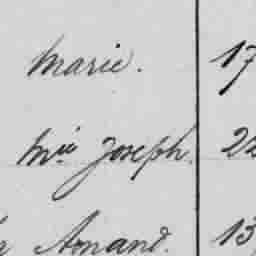 Marie. 17
Mie Joseph. 22
Armand. 13